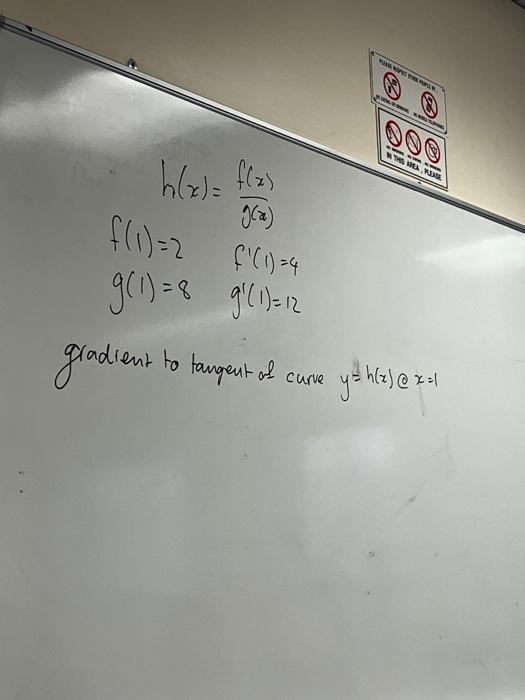 PLEASE RESPECT OTHER PEOPLE BY..
NO EATING OR DRINKING NO MOBILE TELEPHONES
IN THIS AREA, PLEASE
h(x) = f(x)/g(x)
f(1)=2 f'(1)=4
g(1)=8 g'(1)=12
gradient to tangent of curve y=h(x) @ x=1